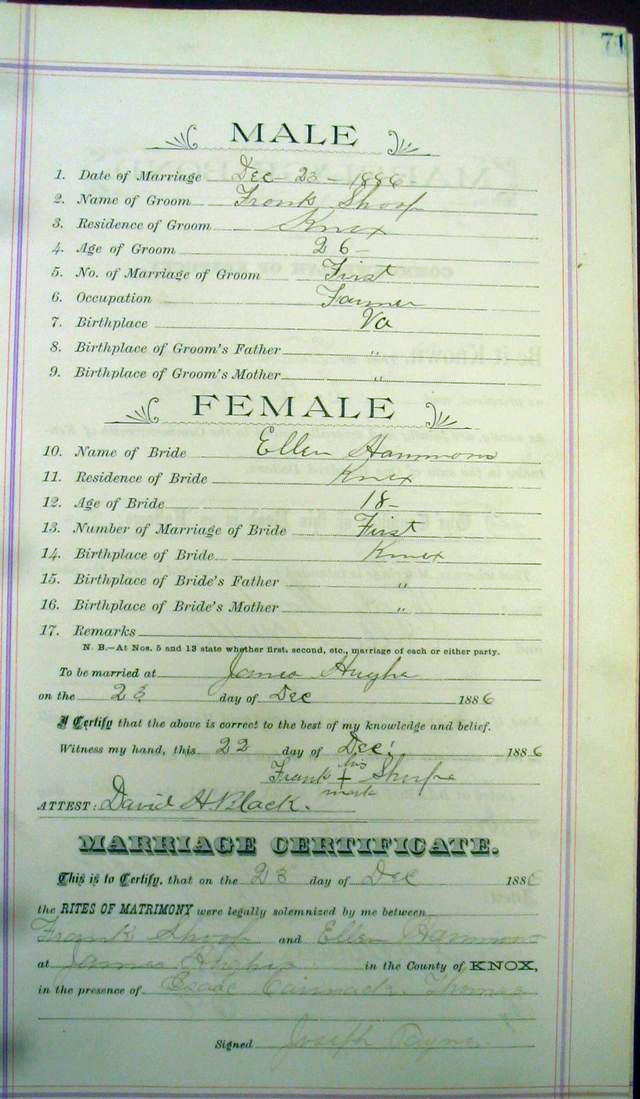 71
MALE
1. Date of Marriage Dec 23 - 1886
2. Name of Groom Frank Sharp
3. Residence of Groom Knox
4. Age of Groom 26 -
5. No. of Marriage of Groom First
6. Occupation Farmer
7. Birthplace Va
8. Birthplace of Groom's Father "
9. Birthplace of Groom's Mother "
FEMALE
10. Name of Bride Ellen Hammons
11. Residence of Bride Knox
12. Age of Bride 18 -
13. Number of Marriage of Bride First
14. Birthplace of Bride Knox
15. Birthplace of Bride's Father "
16. Birthplace of Bride's Mother "
17. Remarks
N. B.—At Nos. 5 and 13 state whether first, second, etc., marriage of each or either party.
To be married at James Hughs
on the 23 day of Dec 1886
I Certify that the above is correct to the best of my knowledge and belief.
Witness my hand, this 22 day of Dec. 1886
his
Frank + Sharp
mark
ATTEST: David H Black.
MARRIAGE CERTIFICATE.
This is to Certify, that on the 23 day of Dec 1886
the RITES OF MATRIMONY were legally solemnized by me between
Frank Sharp and Ellen Hammons
at James Hughs in the County of KNOX,
in the presence of Cammack
Signed Joseph Payne